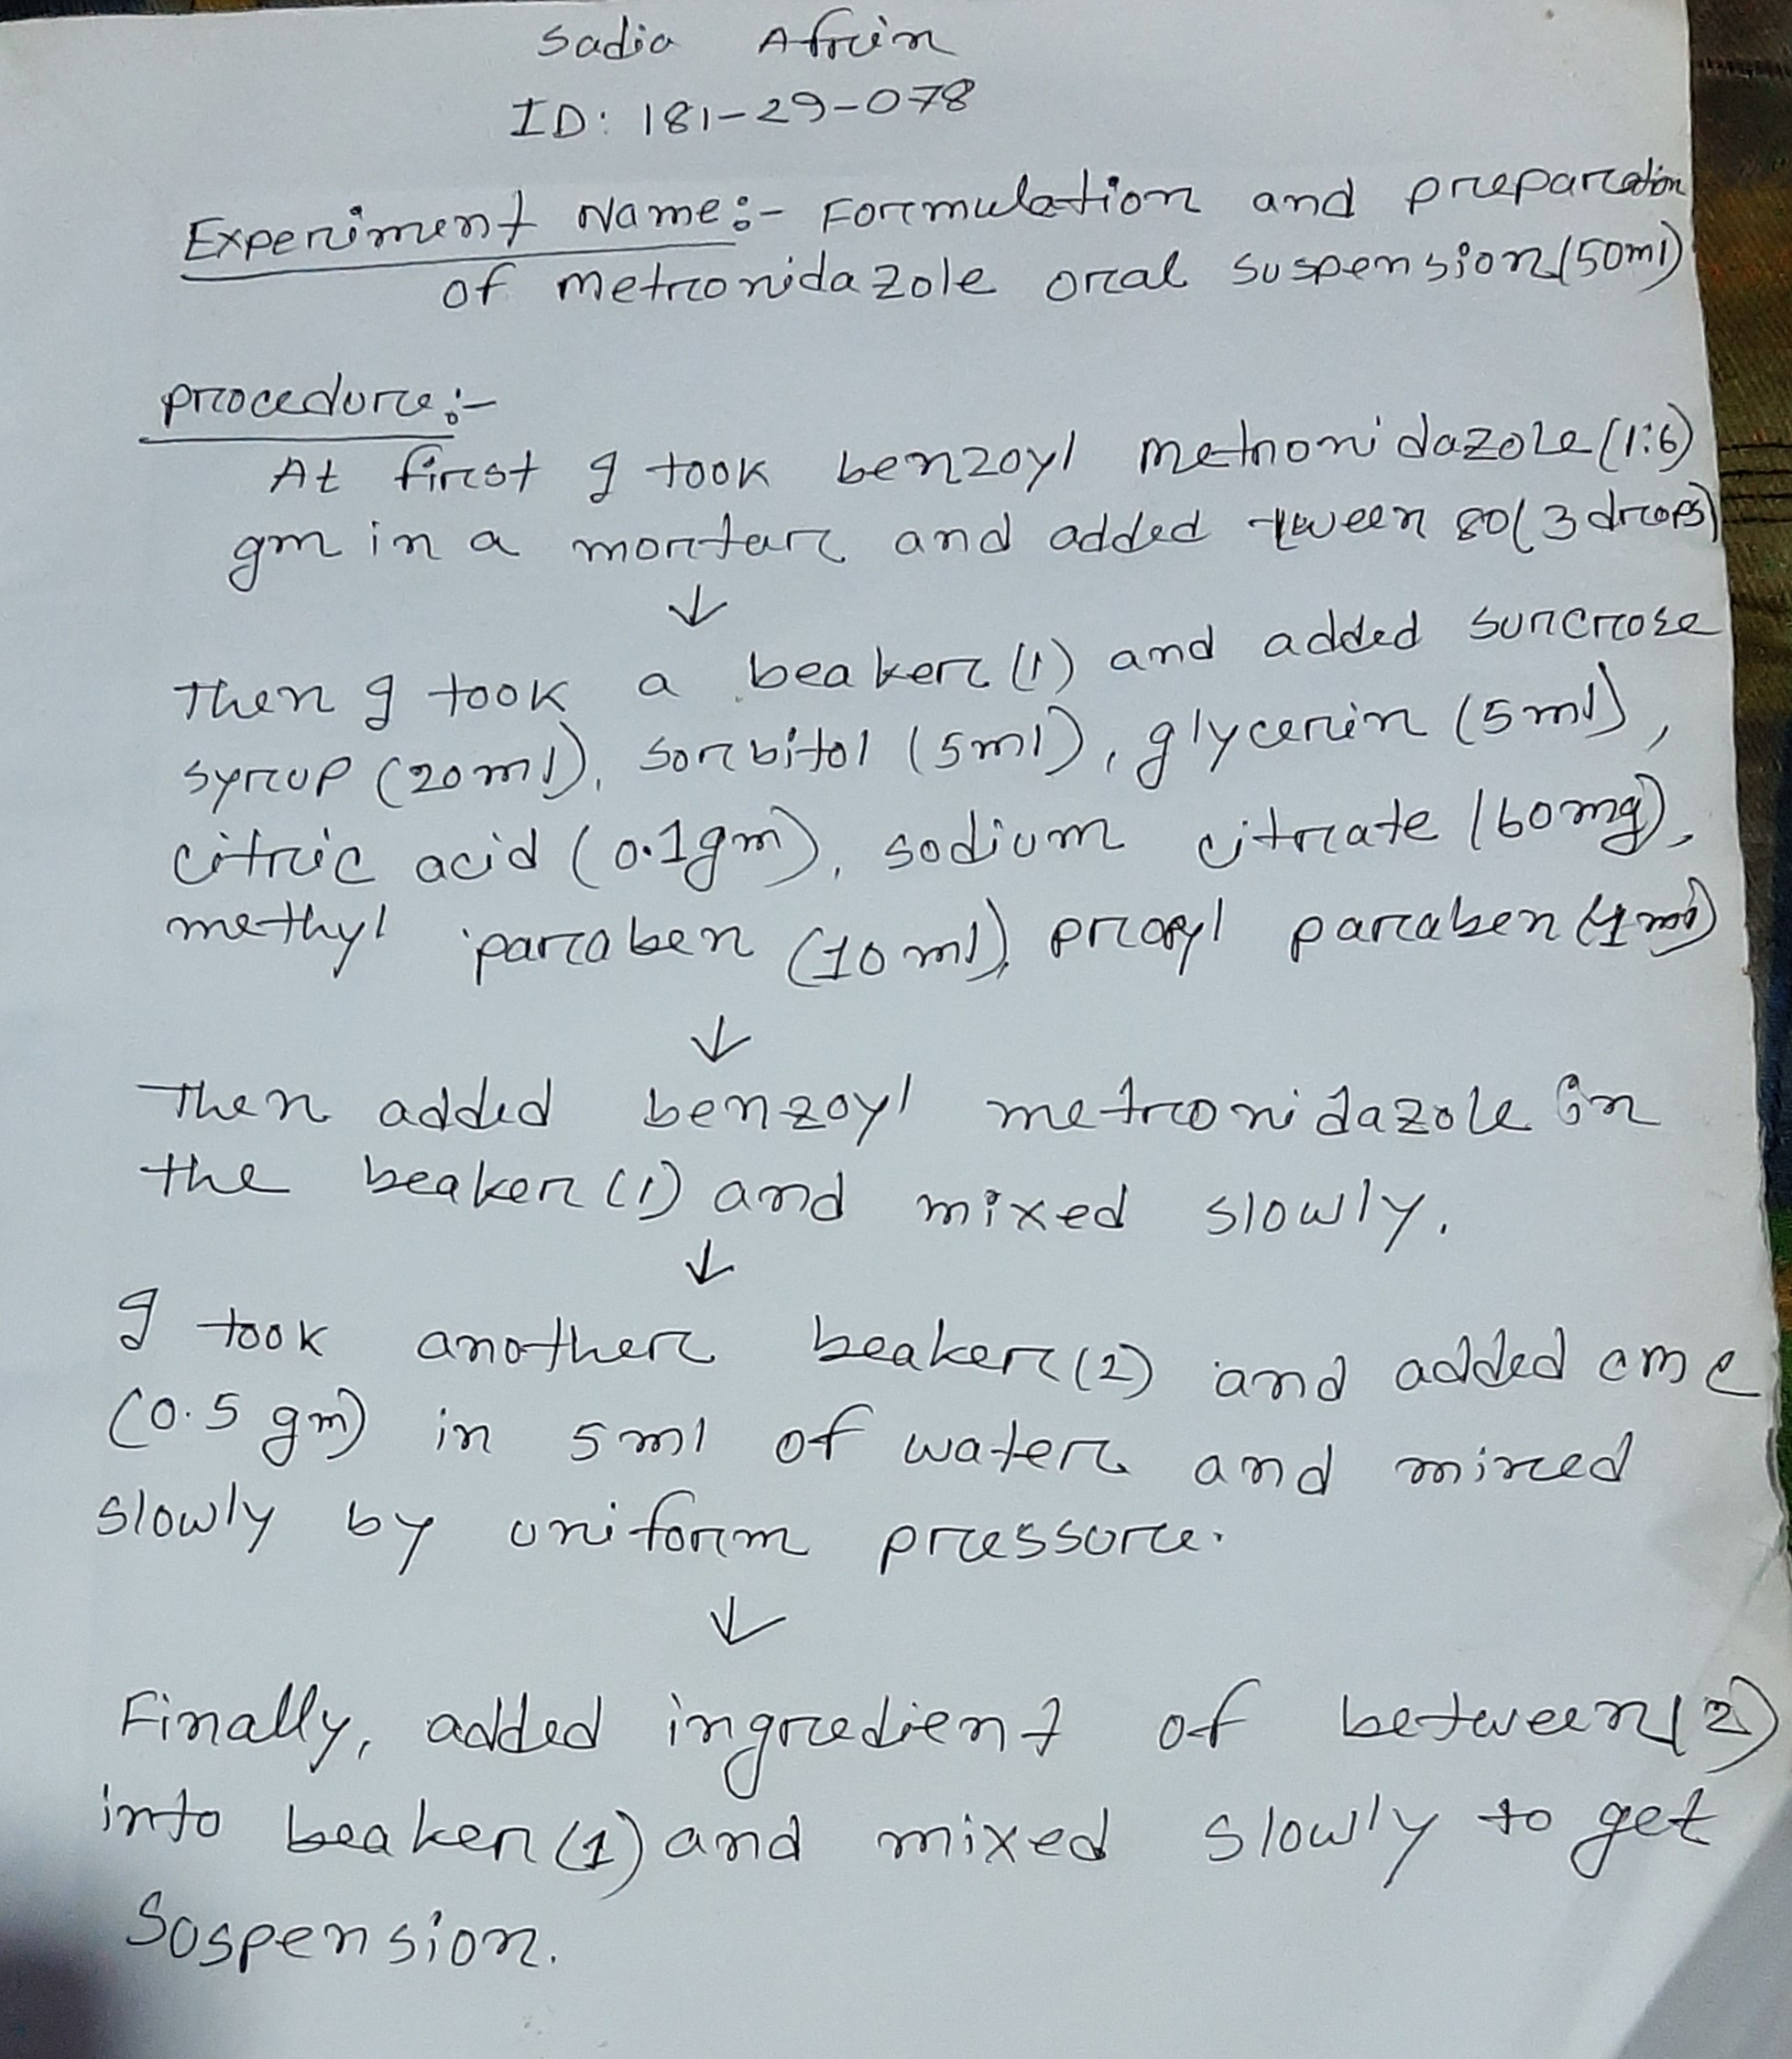 Sadia Afrin
ID: 181-29-078
Experiment Name:- Formulation and preparation
of metronidazole oral suspension (50ml)
procedure:-
At first I took benzoyl metronidazole (1:6)
gm in a mortar and added tween 80 (3 drops)
↓
Then I took a beaker (1) and added surcrose
syrup (20ml), sorbitol (5ml), glycerin (5ml),
citric acid (0.1gm), sodium citrate (60mg),
methyl paraben (10ml), propyl paraben (1ml)
↓
Then added benzoyl metronidazole in
the beaker (1) and mixed slowly.
↓
I took another beaker (2) and added cmc
(0.5 gm) in 5ml of water and mixed
slowly by uniform pressore.
↓
Finally, added ingredient of between (2)
into beaker (1) and mixed slowly to get
Sospension.